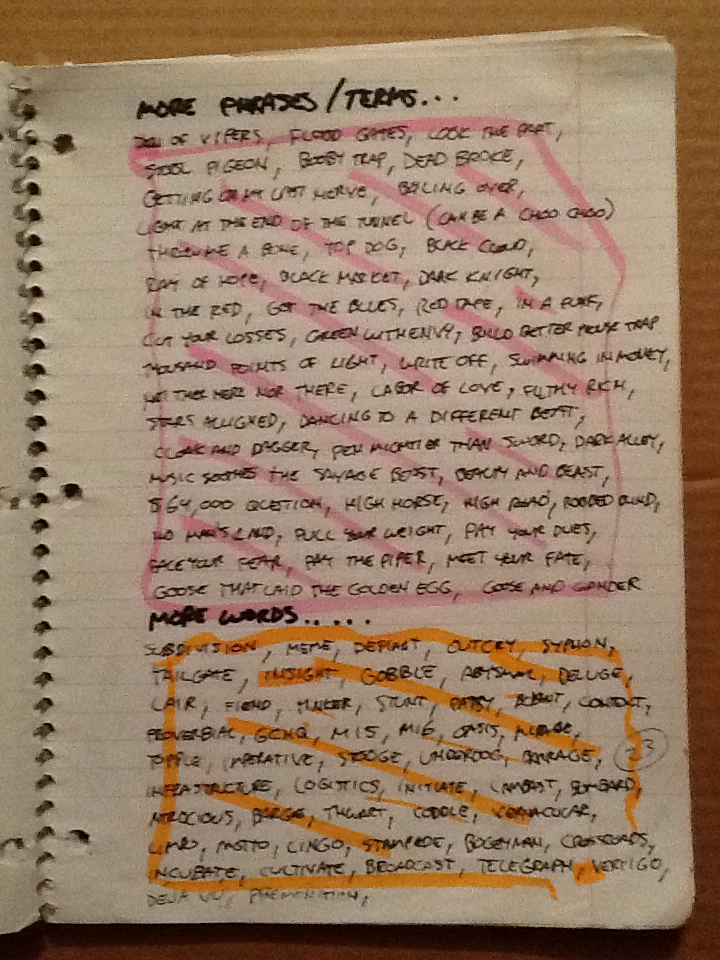 MORE PHRASES/TERMS...
DEN OF VIPERS, FLOOD GATES, LOOK THE PART,
STOOL PIGEON, BOOBY TRAP, DEAD BROKE,
GETTING ON MY LAST NERVE, BOILING OVER,
LIGHT AT THE END OF THE TUNNEL (CAN BE A CHOO CHOO)
THROW ME A BONE, TOP DOG, BLACK CLOUD,
RAY OF HOPE, BLACK MARKET, DARK KNIGHT,
IN THE RED, GOT THE BLUES, RED TAPE, IN A FUNK,
CUT YOUR LOSSES, GREEN WITH ENVY, BUILD BETTER MOUSE TRAP
THOUSAND POINTS OF LIGHT, WRITE OFF, SWIMMING IN MONEY,
NEITHER HERE NOR THERE, LABOR OF LOVE, FILTHY RICH,
STARS ALLIGNED, DANCING TO A DIFFERENT BEAT,
CLOAK AND DAGGER, PEN MIGHTIER THAN SWORD, DARK ALLEY,
MUSIC SOOTHES THE SAVAGE BEAST, BEAUTY AND BEAST,
$64,000 QUESTION, HIGH HORSE, HIGH ROAD, ROBBED BLIND,
NO MAN'S LAND, PULL YOUR WEIGHT, PAY YOUR DUES,
FACE YOUR FEAR, PAY THE PIPER, MEET YOUR FATE,
GOOSE THAT LAID THE GOLDEN EGG, GOOSE AND GANDER
MORE WORDS.....
SUBDIVISION, MEME, DEFIANT, OUTCRY, SYPHON,
TAILGATE, INSIGHT, GOBBLE, ABYSMAL, DELUGE,
LAIR, FIEND, TINKER, STUNT, PATSY, CONTEXT,
PROVERBIAL, GCHQ, MI5, MI6, OASIS,
TOPPLE, IMPERATIVE, STOOGE, UNDERDOG, BARRAGE, 23
INFRASTRUCTURE, LOGISTICS, INITIATE, LAMBAST, BOMBARD,
ATROCIOUS, BARGE, THWART, CODDLE, VERNACULAR,
LIMBO, MOTTO, LINGO, STAMPEDE, BOGEYMAN, CROSSROADS,
INCUBATE, CULTIVATE, BROADCAST, TELEGRAPH, VERTIGO,
DEJA VU, PREMONITION,